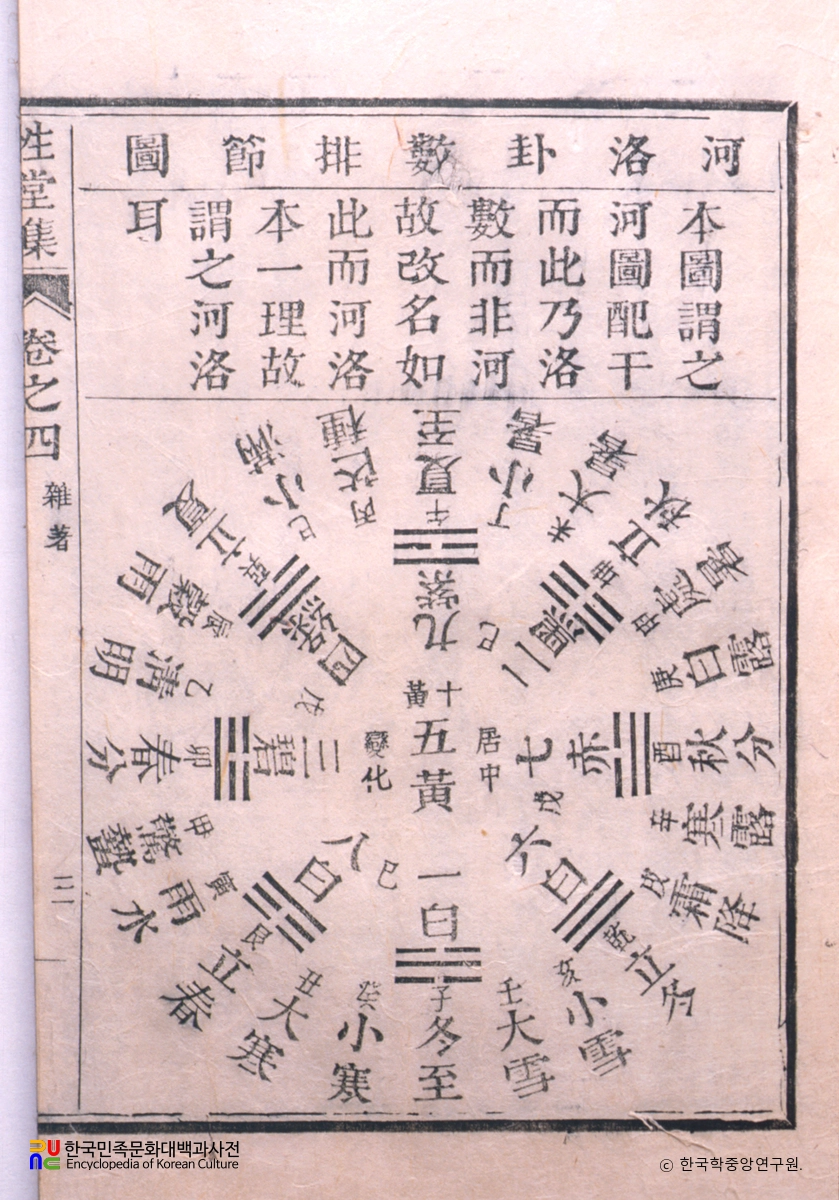 河洛卦數排節圖
本圖謂之
河圖配干
而此乃洛
數而非河
故改名如
此而河洛
本一理故
謂之河洛
耳
夏至
午
九紫
小暑
丁
大暑
未
立秋
坤
二黑
己
處暑
申
白露
庚
秋分
酉
七赤
寒露
辛
霜降
戌
立冬
乾
六白
戊
小雪
亥
大雪
壬
冬至
子
一白
小寒
癸
大寒
丑
立春
艮
八白
己
雨水
寅
驚蟄
甲
春分
卯
三碧
清明
乙
穀雨
辰
立夏
巽
四綠
戊
小滿
巳
芒種
丙
十黃
五黃
居中
變化
堂集
卷之四
雜著
한국민족문화대백과사전
Encyclopedia of Korean Culture
ⓒ 한국학중앙연구원.